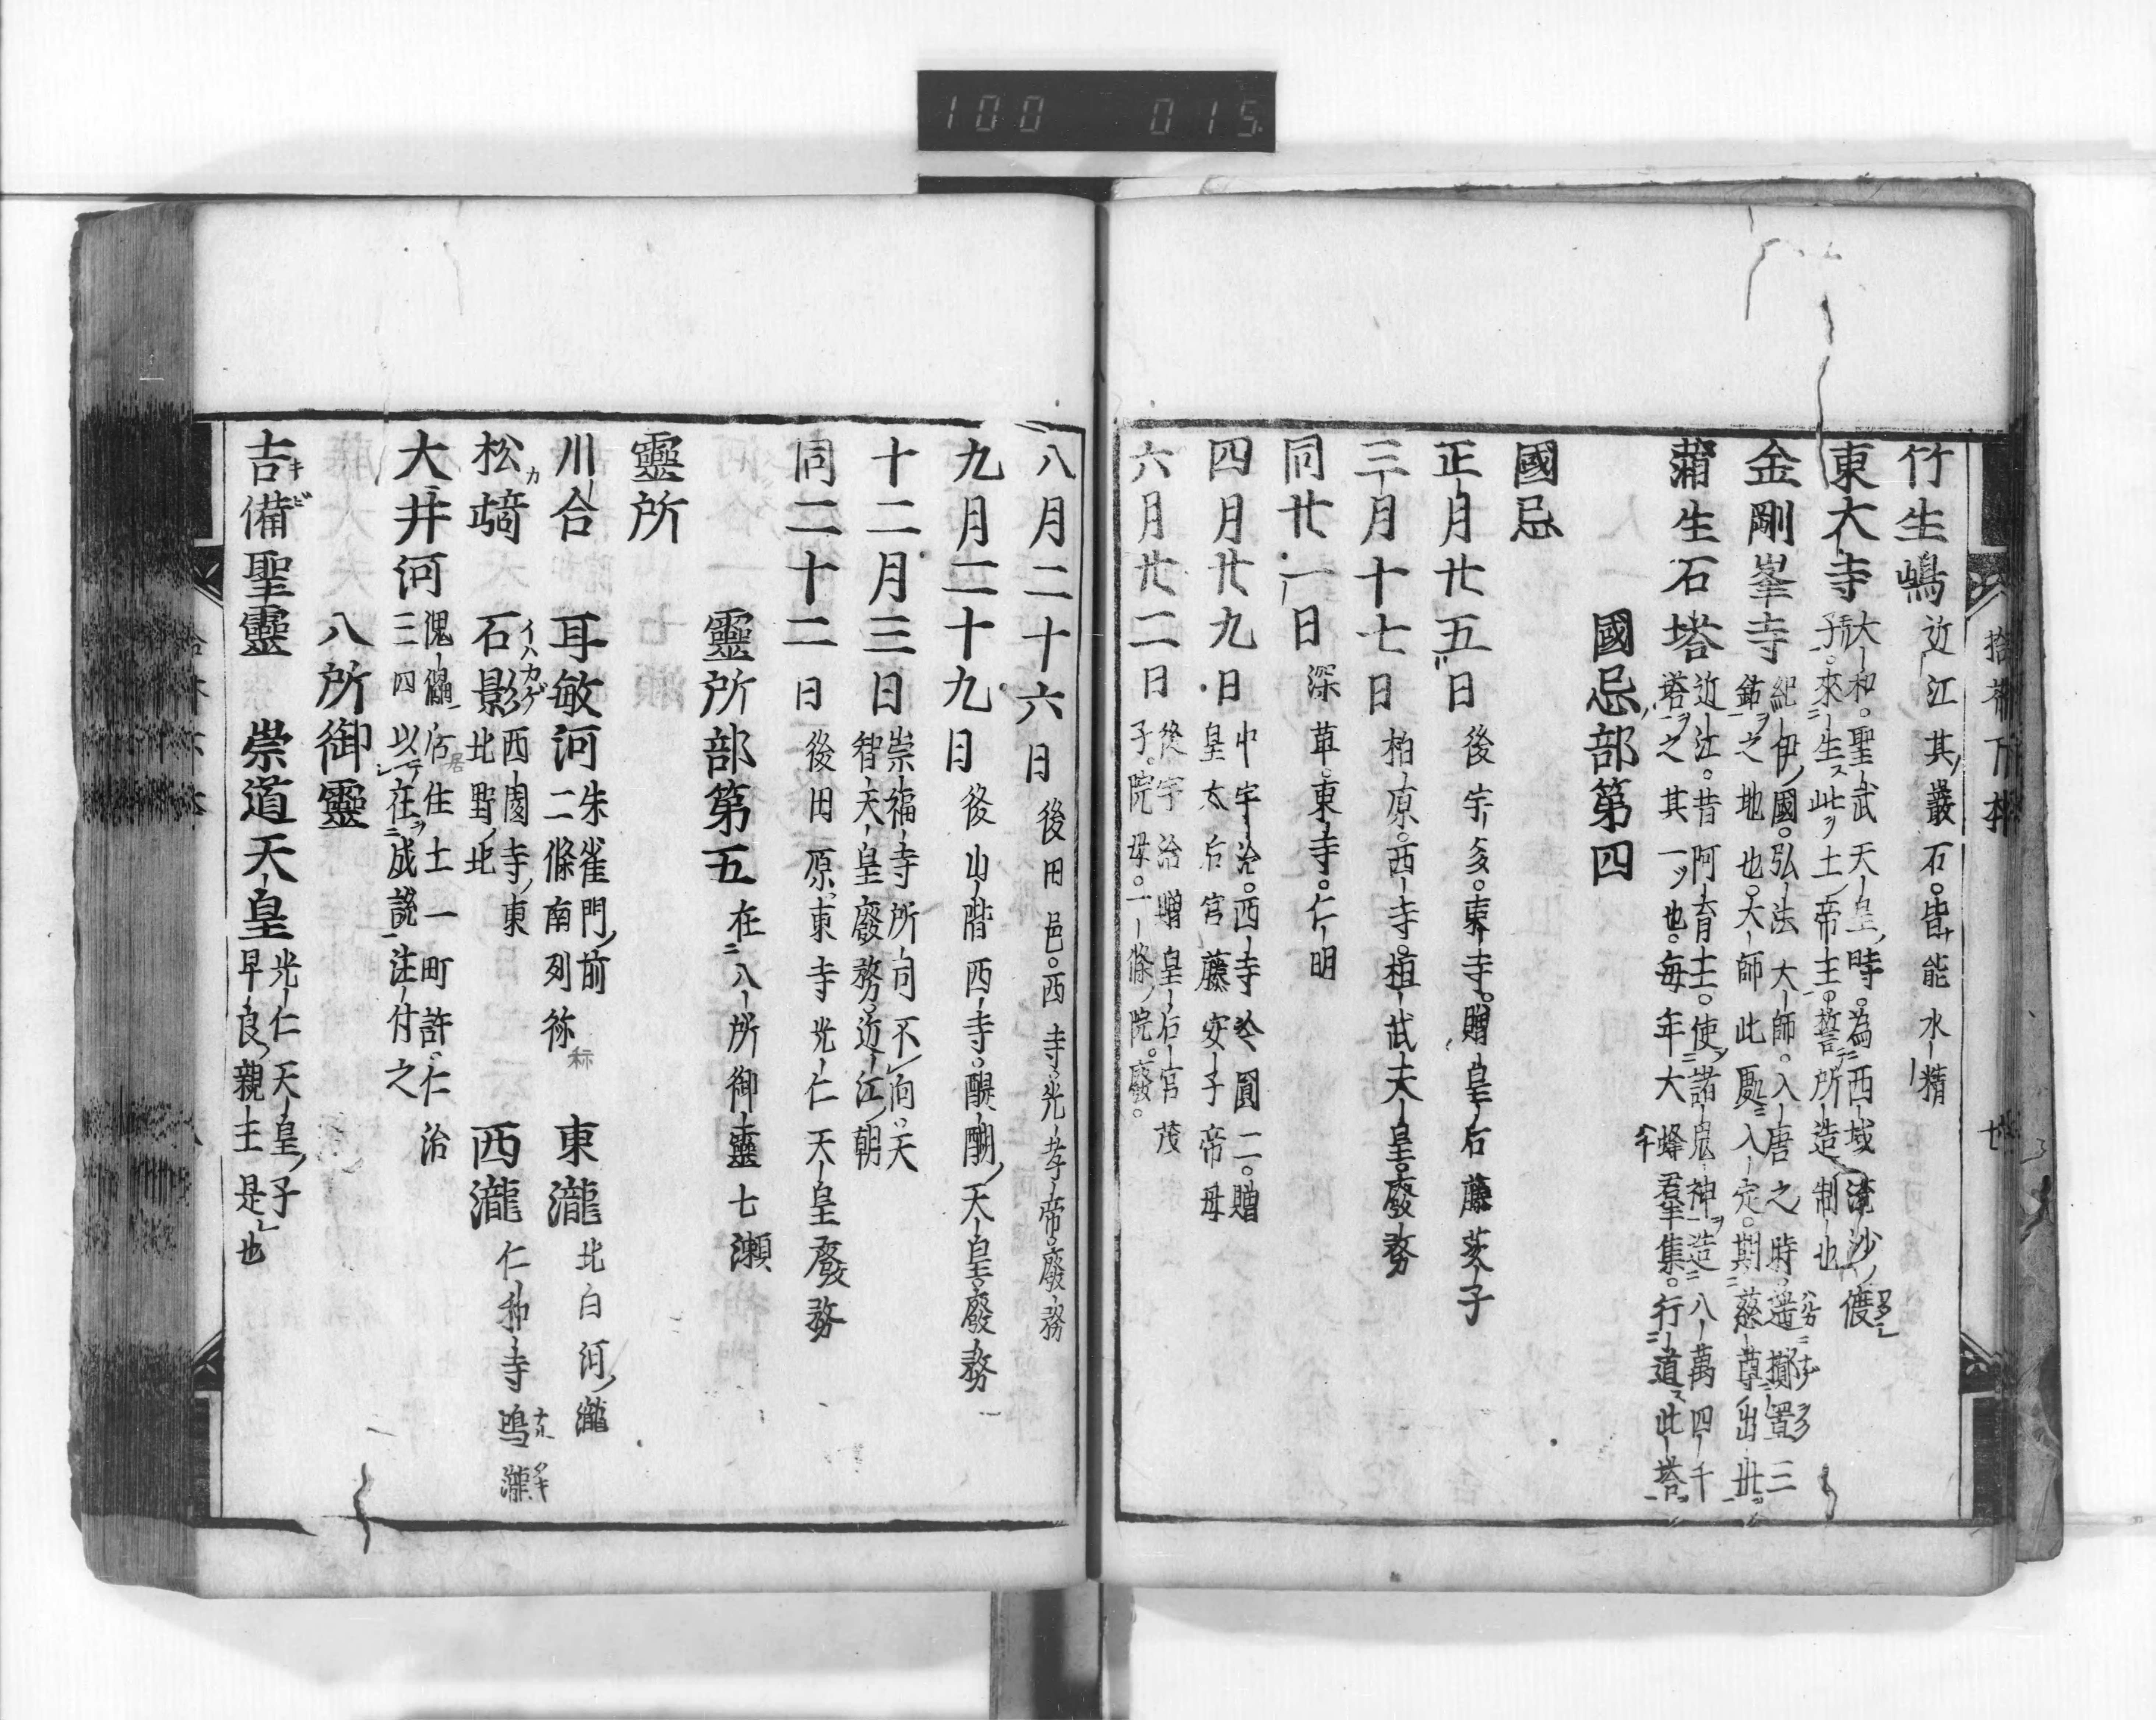 100 015
竹生嶋 近江其巖石皆能水精
東大寺 大和聖武天皇時為西域流沙傻
子來生此土帝王誓所造制也
金剛峯寺 紀伊國弘法大師入唐之時遥擲置三
鈷之地也大師此處入定期慈尊出丗
蒲生石塔 近江昔阿育王使諸鬼神造八萬四千
塔之其一也毎年大蜂羣集行道此塔
國忌部第四
國忌
正月廿五日 後宇多東寺贈皇后藤茨子
三月十七日 柏原西寺桓武天皇廢務
同廿一日 深草東寺仁明
四月廿九日 中宇治西寺圓二贈
皇太后宮藤安子帝母
六月廿二日 後宇治贈皇后宮茂
子院母二條院廢
八月二十六日 後田邑西寺光孝帝廢務
九月二十九日 後山階西寺醍醐天皇廢務
十二月三日 崇福寺所司不向天
智天皇廢務近江朝
同二十二日 後田原東寺光仁天皇廢務
靈所部第五 在八所御靈七瀬
靈所
川合 耳敏河 朱雀門前
二條南列 東瀧 北白河瀧
松﨑 石影 西園寺東
北野北 西瀧 仁和寺鳴瀧
大井河 傀儡居住土一町許仁治
三四以在成説注付之
八所御靈
吉備聖靈 崇道天皇 光仁天皇子
早良親王是也